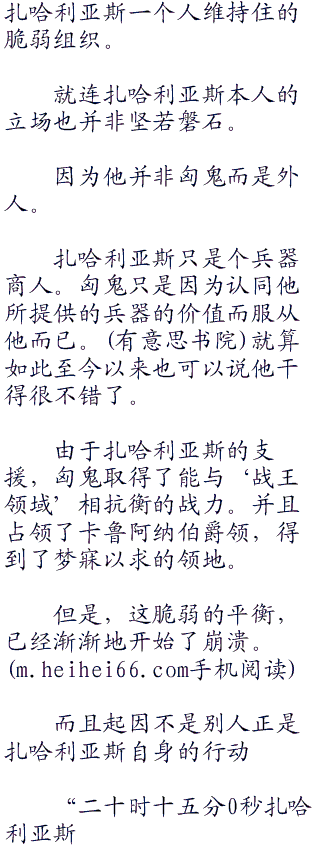 扎哈利亚斯一个人维持住的
脆弱组织。
就连扎哈利亚斯本人的
立场也并非坚若磐石。
因为他并非匈鬼而是外
人。
扎哈利亚斯只是个兵器
商人。匈鬼只是因为认同他
所提供的兵器的价值而服从
他而已。(有意思书院)就算
如此至今以来也可以说他干
得很不错了。
由于扎哈利亚斯的支
援，匈鬼取得了能与‘战王
领域’相抗衡的战力。并且
占领了卡鲁阿纳伯爵领，得
到了梦寐以求的领地。
但是，这脆弱的平衡，
已经渐渐地开始了崩溃。
(m.heihei66.com手机阅读)
而且起因不是别人正是
扎哈利亚斯自身的行动
“二十时十五分0秒扎哈
利亚斯